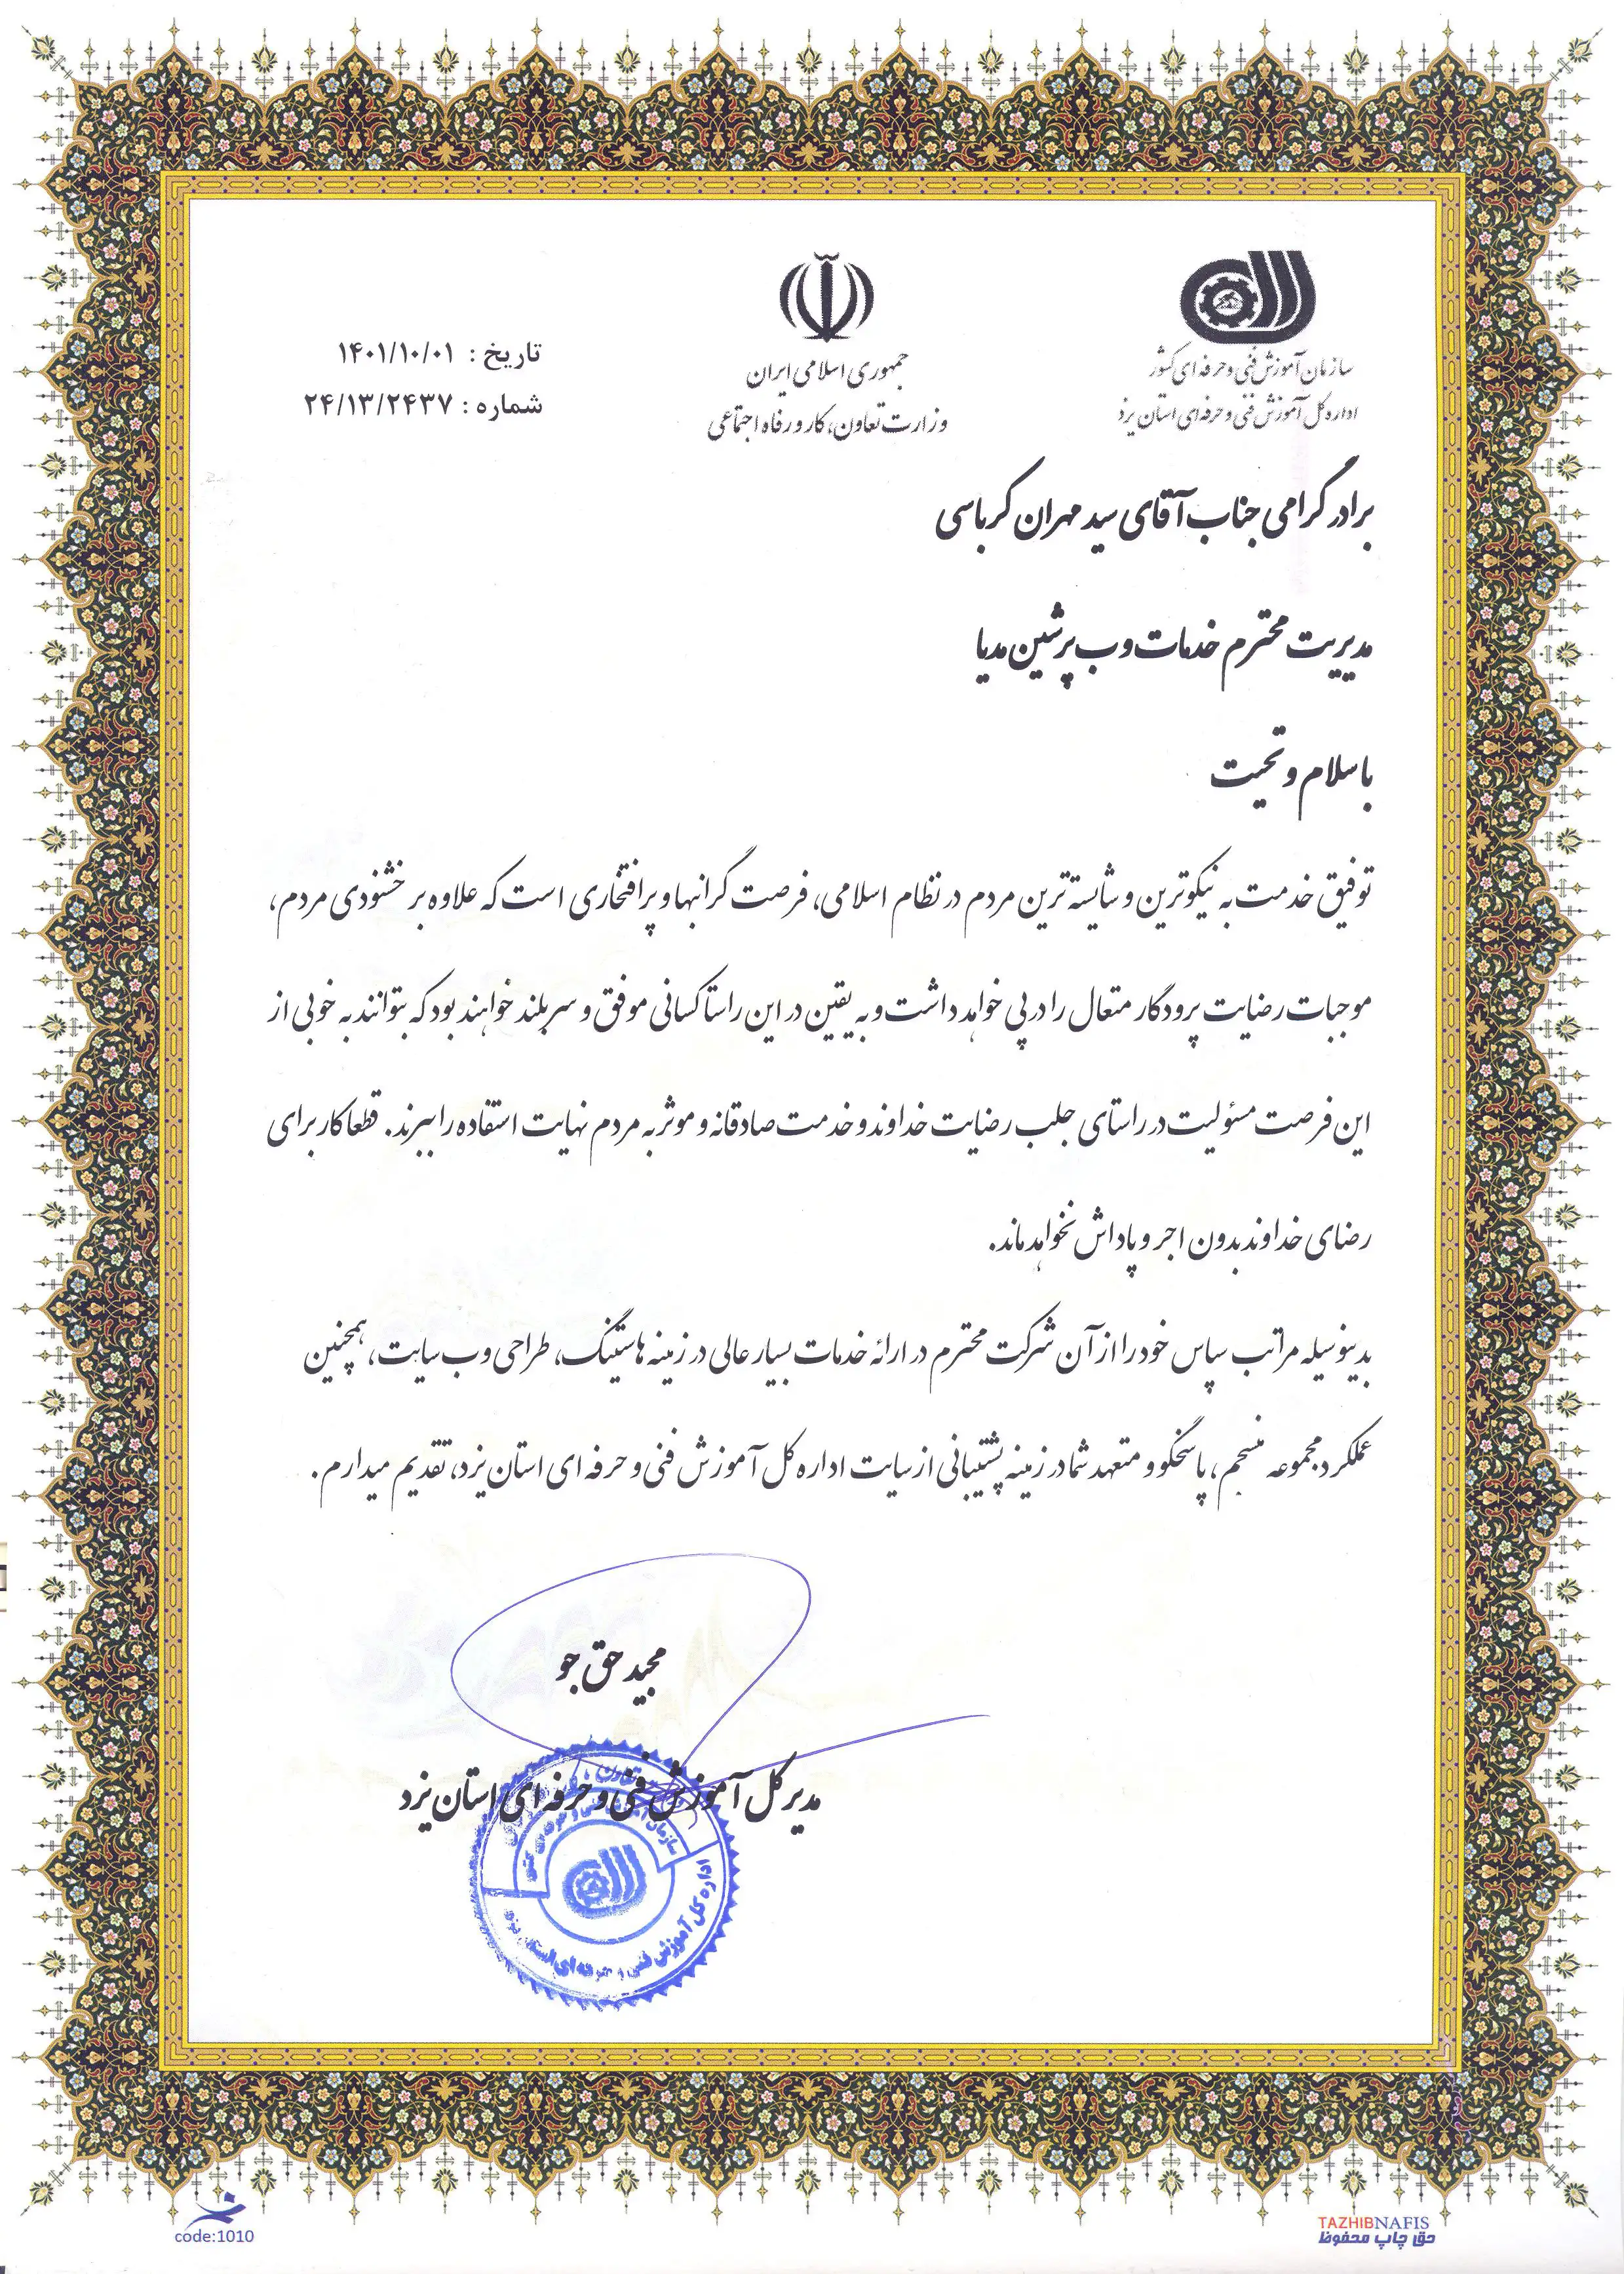 سازمان آموزش فنی و حرفه ای کشور
اداره کل آموزش فنی و حرفه ای استان یزد
جمهوری اسلامی ایران
وزارت تعاون، کار و رفاه اجتماعی
تاریخ : ۱۴۰۱/۱۰/۰۱
شماره : ۲۴/۱۳/۲۴۳۷
برادر گرامی جناب آقای سید مهران کرباسی
مدیریت محترم خدمات وب پرشین مدیا
با سلام و تحیت
توفیق خدمت به نیکوترین و شایسته ترین مردم در نظام اسلامی، فرصت گرانبها و پرافتخاری است که علاوه بر خشنودی مردم،
موجبات رضایت پرودگار متعال را در پی خواهد داشت و به یقین در این راستا کسانی موفق و سربلند خواهند بود که بتوانند به خوبی از
این فرصت مسئولیت در راستای جلب رضایت خداوند و خدمت صادقانه و موثر به مردم نهایت استفاده را ببرند. قطعا کار برای
رضای خداوند بدون اجر و پاداش نخواهد ماند.
بدینوسیله مراتب سپاس خود را از آن شرکت محترم در ارائه خدمات بسیار عالی در زمینه هاستینگ، طراحی وب سایت، همچنین
عملکرد مجموعه منسجم، پاسخگو و متعهد شما در زمینه پشتیبانی از سایت اداره کل آموزش فنی و حرفه ای استان یزد، تقدیم میدارم.
مجید حق جو
مدیر کل آموزش فنی و حرفه ای استان یزد
سازمان آموزش فنی و حرفه ای کشور
اداره کل آموزش فنی و حرفه ای استان یزد
code:1010
TAZHIBNAFIS
حق چاپ محفوظ